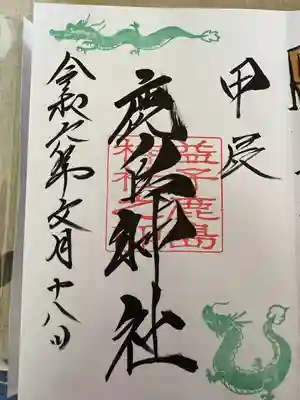 甲辰
鹿島神社
益子鹿島
令和六年文月十八日